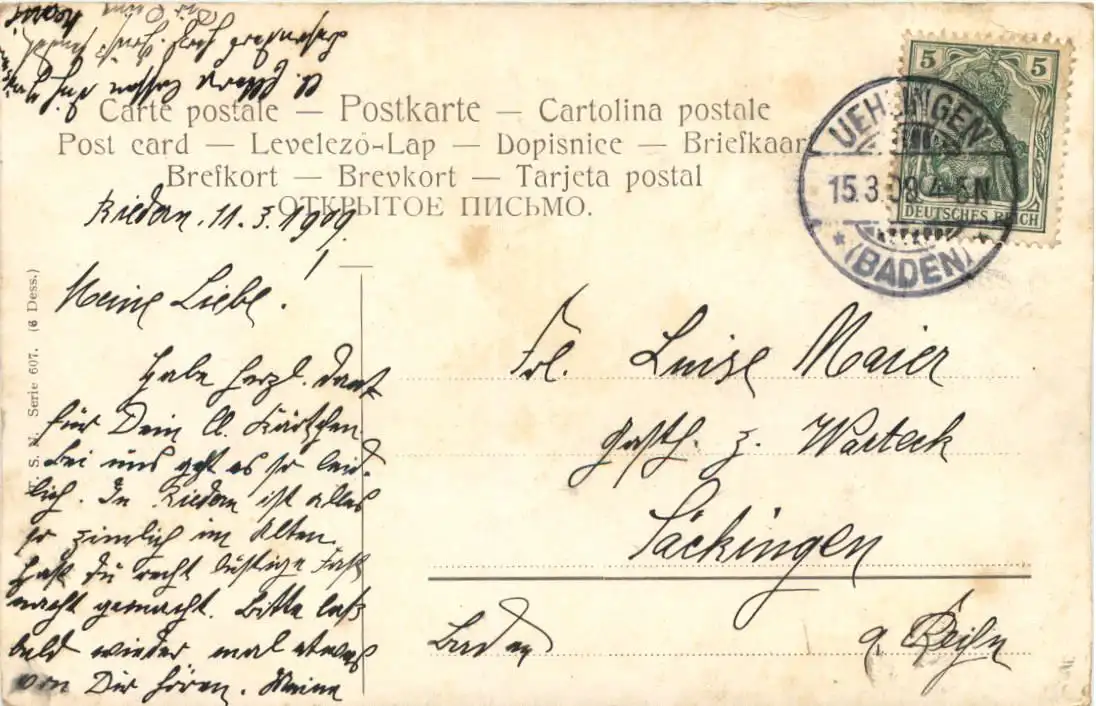 Carte postale — Postkarte — Cartolina postale
Post card — Levelező-Lap — Dopisnice — Briefkaart
Brefkort — Brevkort — Tarjeta postal
ОТКРЫТОЕ ПИСЬМО.
5 5
DEUTSCHES REICH
UEHLINGEN
15.3.09. 4-5N
(BADEN)
Riedern, 11.3.1909.
Meine Liebe!
Habe herzl. Dank
für Dein kl. Kärtchen.
Bei uns geht es so leid-
lich. In Riedern ist alles
so zimlich im Alten.
Hast Du recht lustige Fast
nacht gemacht. Bitte laß
bald wieder mal etwas
von Dir hören. Meine
S. N. Serie 607. (6 Dess.)
Frl. Luise Maier
Gasth. z. Warteck
Säckingen
Baden a. Rhein